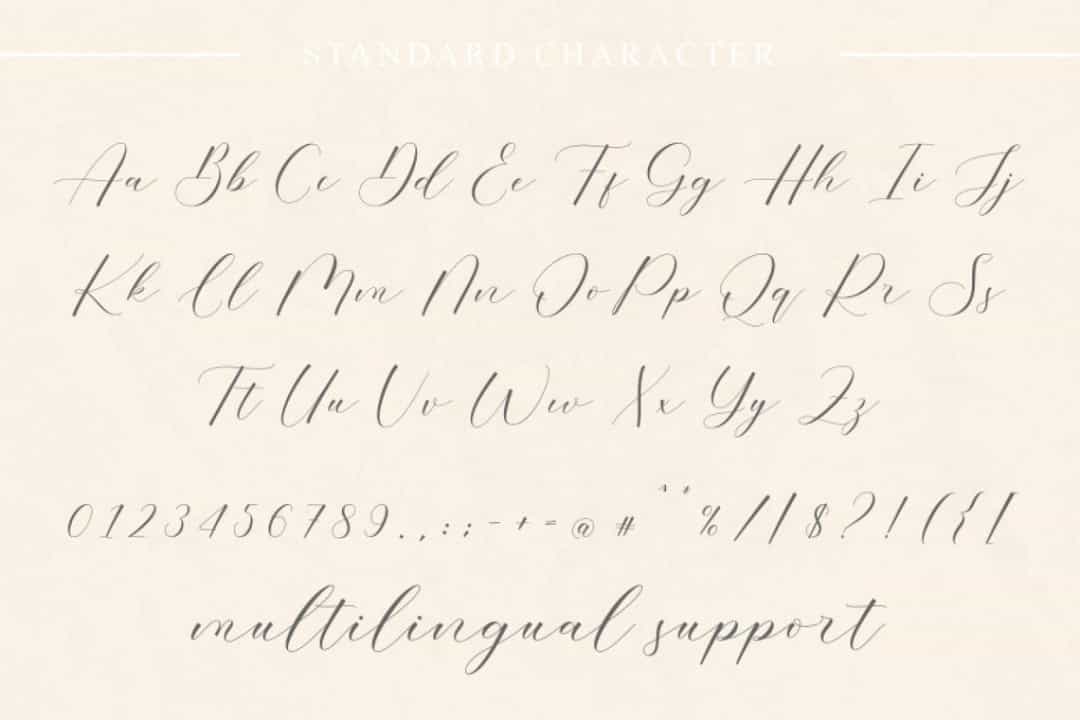 STANDARD CHARACTER
Aa Bb Cc Dd Ee Ff Gg Hh Ii Jj
Kk Ll Mm Nn Oo Pp Qq Rr Ss
Tt Uu Vv Ww Xx Yy Zz
0 1 2 3 4 5 6 7 8 9 . , : ; - + = @ # ^ * % / | $ ? ! ( { [
multilingual support